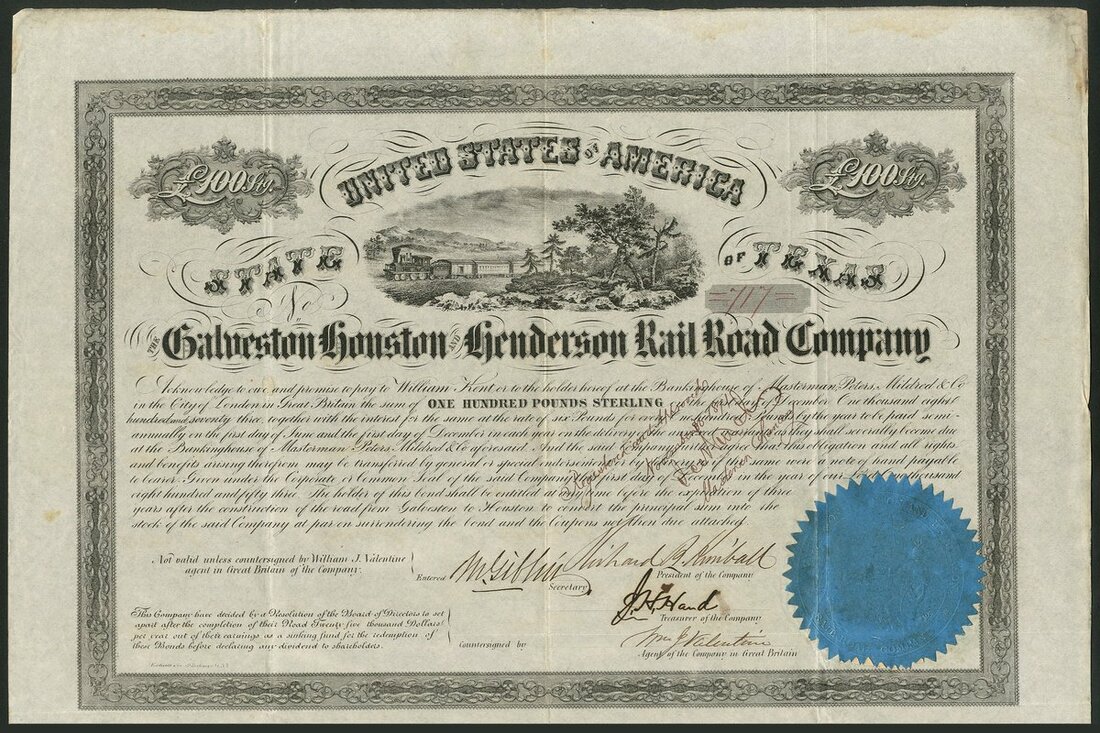 £100 Stg.
UNITED STATES OF AMERICA
£100 Stg.
STATE
OF TEXAS
No
717
THE Galveston Houston AND Henderson Rail Road Company
Acknowledge to owe and promise to pay to William Kent or to the holder hereof at the Bankinghouse of Masterman, Peters, Mildred & Co
in the City of London in Great Britain the sum of ONE HUNDRED POUNDS STERLING on the first day of December One thousand eight
hundred and seventy three, together with the interest for the same at the rate of six Pounds for every hundred Pounds by the year to be paid semi-
annually on the first day of June and the first day of December in each year on the delivery of the annexed warrants as they shall severally become due
at the Bankinghouse of Masterman Peters Mildred & Co aforesaid. And the said Company hereby agree that this obligation and all rights,
and benefits arising therefrom may be transferred by general or special endorsement or by delivery as if the same were a note of hand payable
to bearer. Given under the Corporate or Common Seal of the said Company the first day of December in the year of our thousand
eight hundred and fifty three. The holder of this bond shall be entitled at any time before the expiration of three
years after the construction of the road from Galveston to Houston to convert the principal sum into the
stock of the said Company at par on surrendering the bond and the Coupons not then due attached.
Registered
November
Not valid unless countersigned by William J. Valentine
agent in Great Britain of the Company.
Entered
Secretary
Richard B. Kimball
President of the Company
J. H. Hand
Treasurer of the Company
This Company have decided by a Resolution of the Board of Directors to set
apart after the completion of their Road Twenty five thousand Dollars
per year out of their earnings as a sinking fund for the redemption of
these Bonds before declaring any dividend to shareholders.
Countersigned by
Wm J Valentine
Agent of the Company in Great Britain